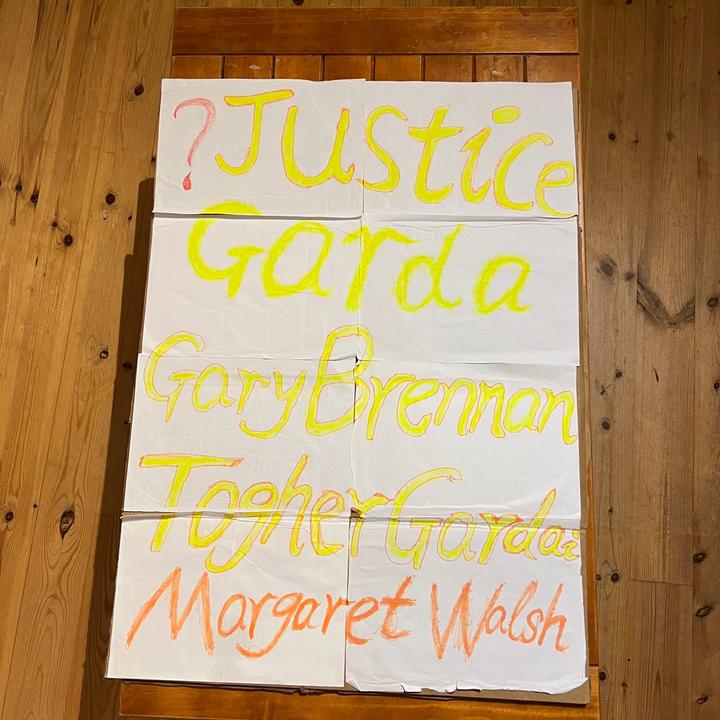 ?Justice
Garda
Gary Brennan
Togher Gardai
Margaret Walsh